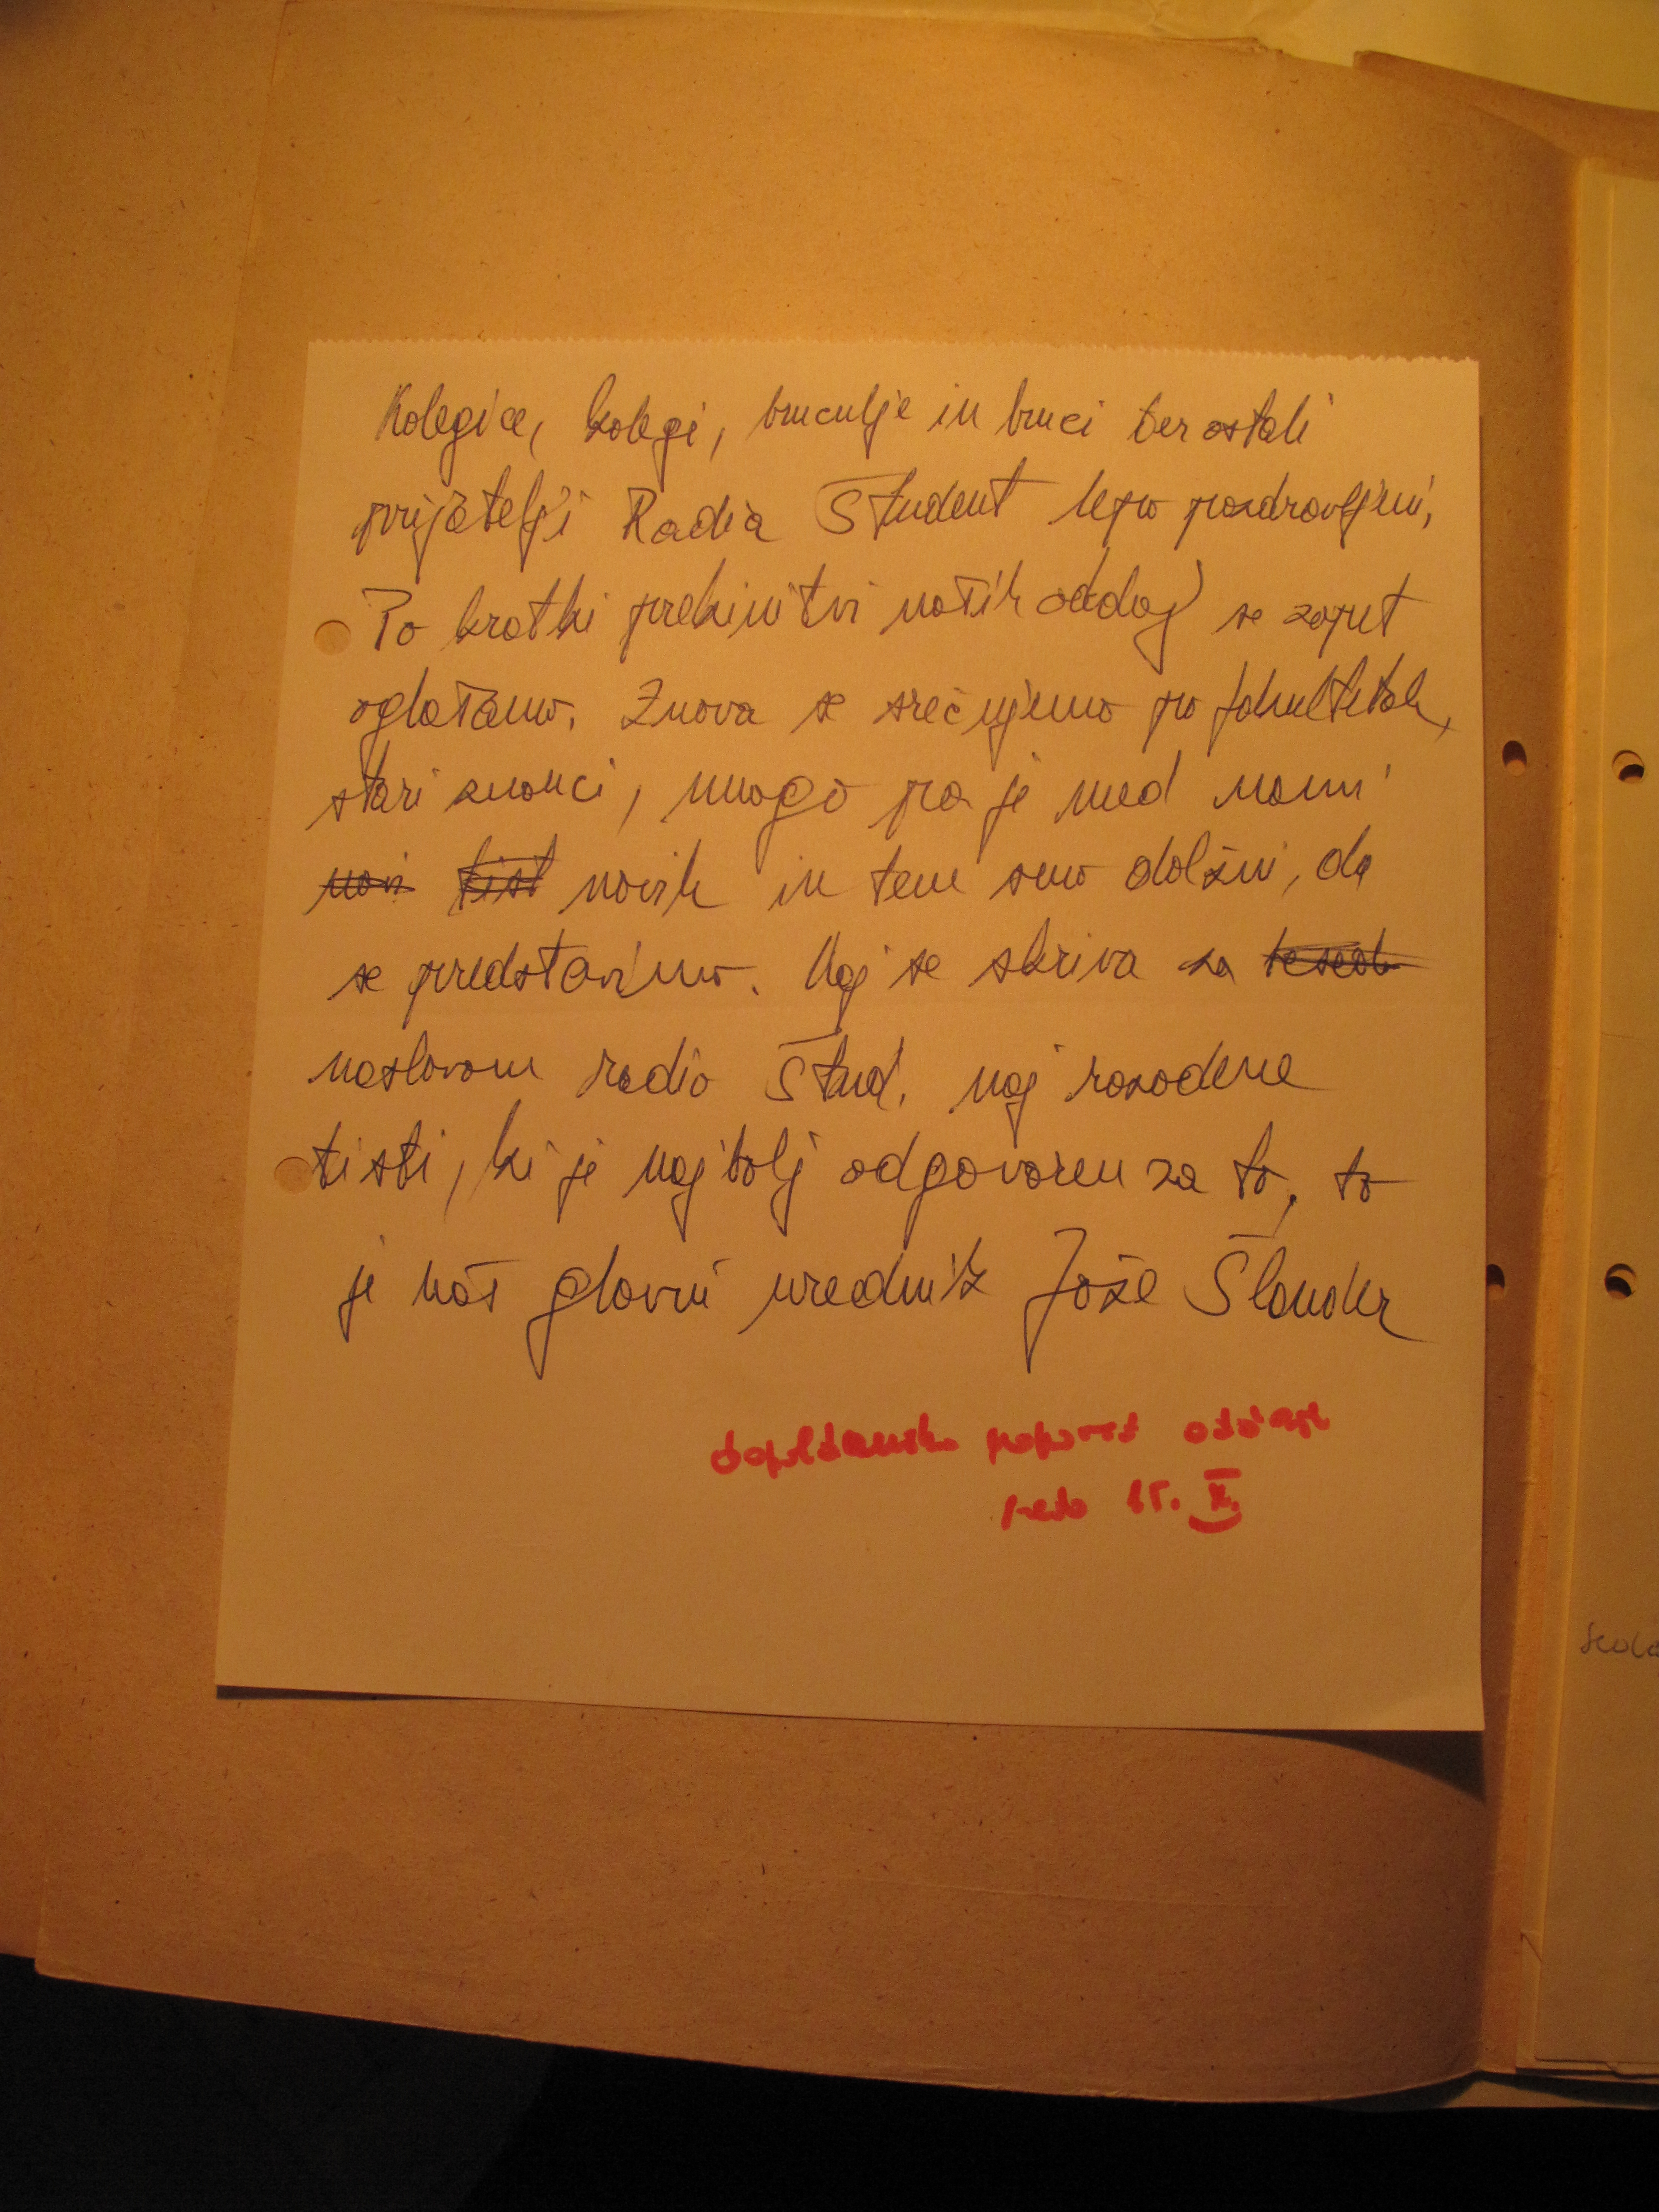 Kolegice, kolegi, bruculje in bruci ter ostali
prijatelji Radia Študent lepo pozdravljeni,
Po kratki prekinitvi naših oddaj se zopet
oglašamo. Znova se srečujemo po fakultetah,
stari znanci, mnogo pa je med nami
novi tist novih in tem smo dolžni, da
se predstavimo. Kaj se skriva za
naslovom radio Štud. naj razodene
tisti, ki je najbolj odgovoren za to, to
je naš glavni urednik Jože Šlander
dopoldanska
15. X.